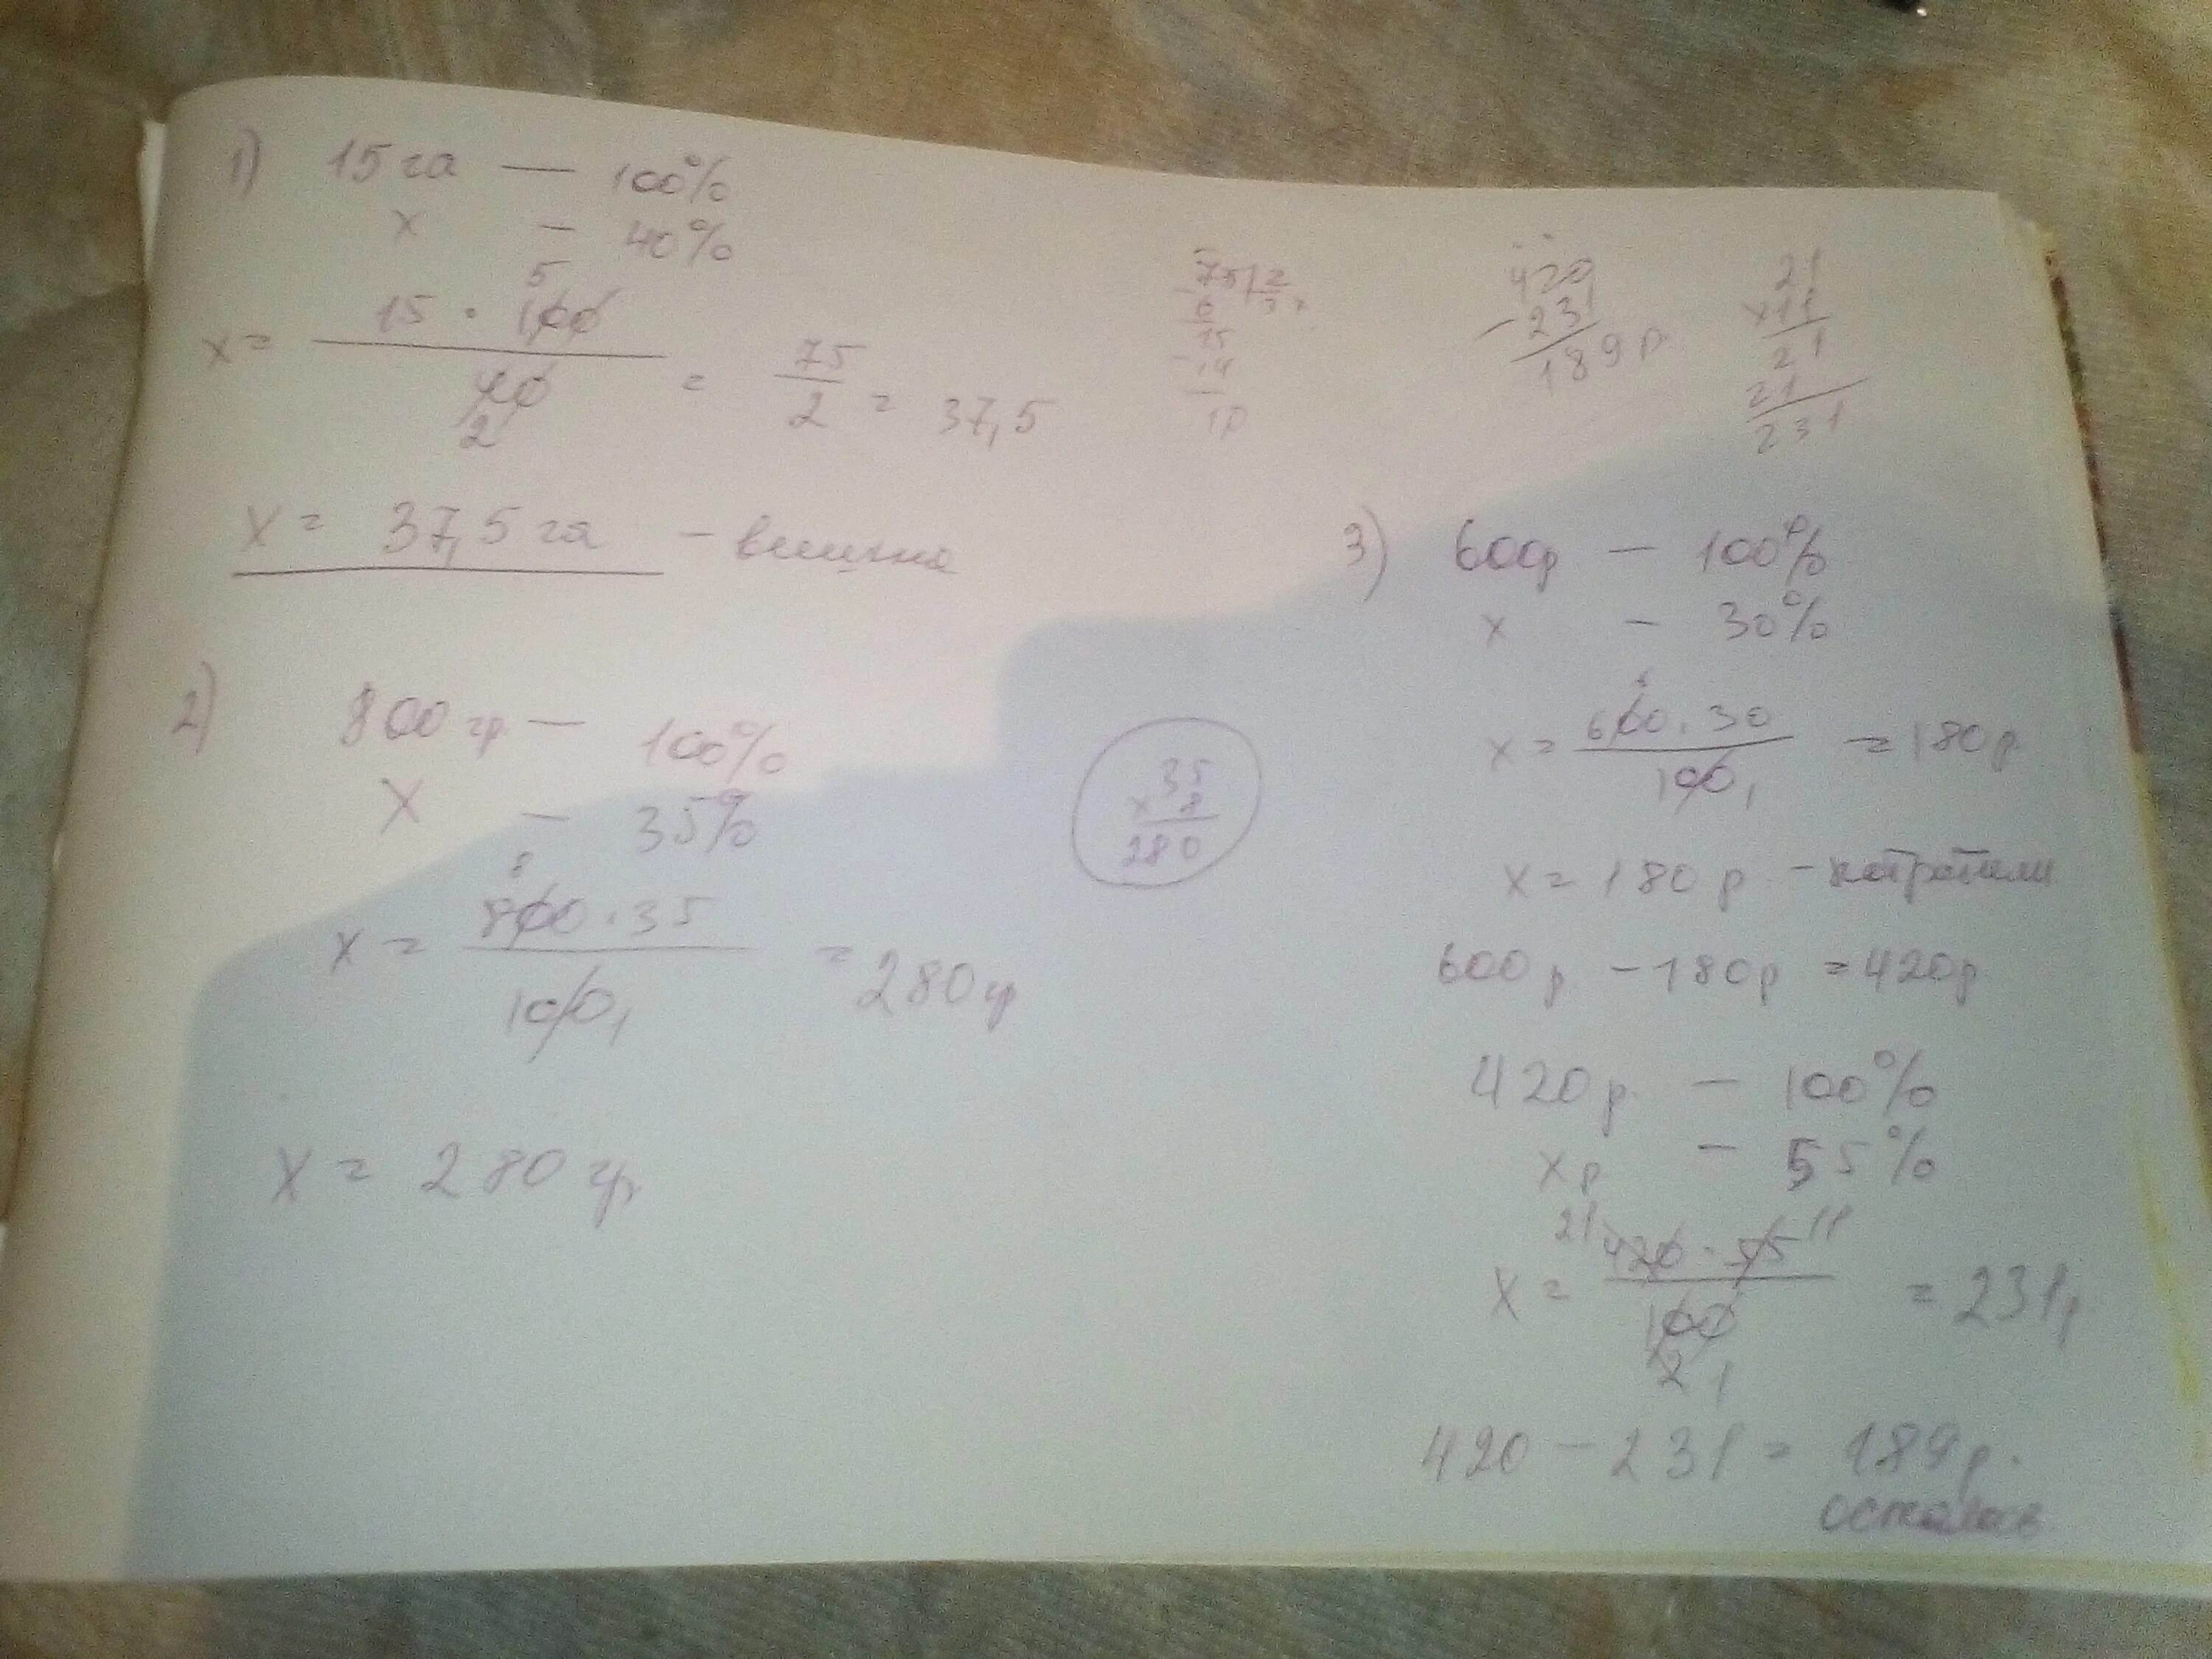 1) 15 га — 100%
х — 40%
5
х = 15 · 100 / 40 = 75/2 = 37,5
2
х = 37,5 га — вишня
75 | 2
- 6 3
15
- 14
10
420
- 231
189 р.
21
× 11
21
21
231
2) 800 гр. — 100%
х — 35%
8
х = 800 · 35 / 100 1 = 280 гр
х = 280 гр
35
× 8
280
3) 600р — 100%
х — 30%
х = 600 · 30 / 100 1 = 180 р.
х = 180 р. — потратили
600 р — 180 р = 420 р
420 р. — 100%
х р — 55%
21 11
х = 420 · 55 / 100 = 231 р
2 1
420 — 231 = 189 р.
осталось